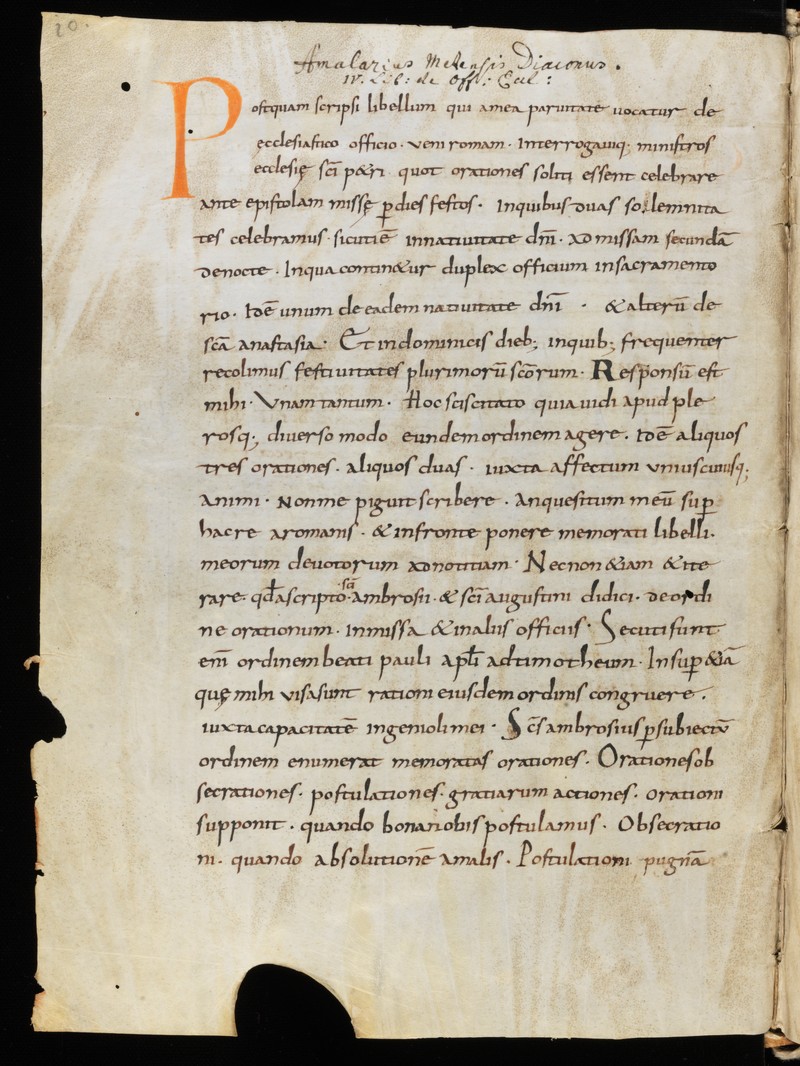 20.
Amalarius Metensis Diaconus.
IV. Lib: de Off: Eccl:
Postquam scripsi libellum qui amea paruitate uocatur de
ęcclesiastico officio · veni romam · Interrogauiq; ministros
ecclesię sci̅ p&ri quot orationes soliti essent celebrare
ante epistolam missę p̲dies festos · Inquibus duas sollemnita
tes celebramus · sicuti ē innatiuitate dn̅i · Ad missam secundā
denocte · Inqua contin&ur duplex officium insacramento
rio · Idē unum de eadem natiuitate dn̅i · & alterū de
sc̅a anastasia · Et indominicis dieb; inquib; frequenter
recolimus festiuitates plurimorū sc̅orum · Responsū est
mihi · Vnam tantum · Hoc sciscitato quia uidi apud ple
rosq; diuerso modo eundem ordinem agere · Idē aliquos
tres orationes · aliquos duas · iuxta affectum vniuscuiusq;
animi · Non me piguit scribere · anquesitum meū sup̲
hac re aromanis · & infronte ponere memorati libelli ·
meorum deuotorum ad notitiam · Necnon &iam & ite
rare · qd̅ ascripto sc̅i ambrosii · & sc̅i augustini didici · de ordi
ne orationum · inmissa & inaliis officiis · Secuti sunt
eni̅ ordinem beati pauli apl̅i ad timotheum · Insup̲ &iā
quę mihi visa sunt rationi eiusdem ordinis congruere ·
iuxta capacitatē ingenioli mei · Sc̅s ambrosius p̲ subiectū
ordinem enumerat memoratas orationes · Orationes ob
secrationes · postulationes · gratiarum actiones · orationi
supponit · quando bona nobis postulamus · Obsecratio
ni · quando absolutionē amalis · Postulationi pugnā